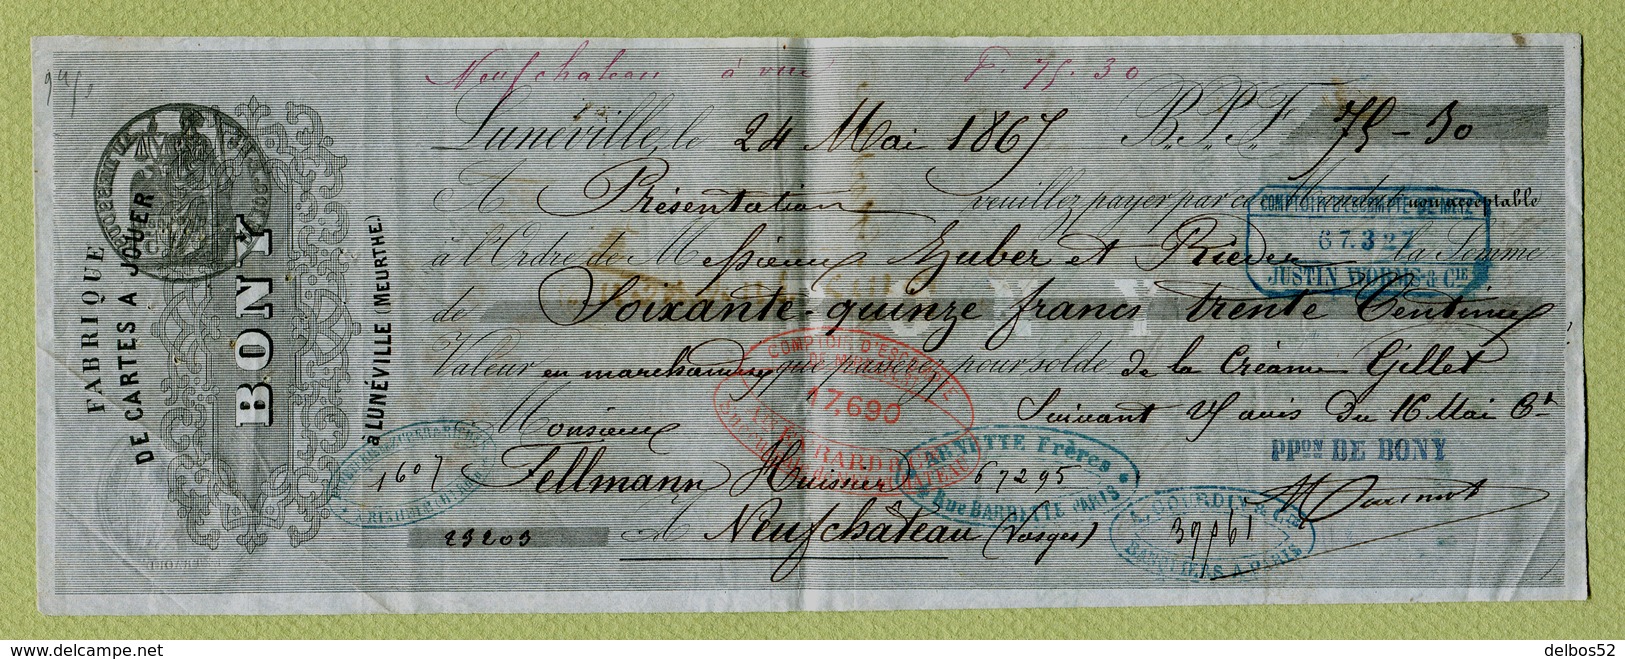 Neufchateau à vue F. 75.30
Lunéville, le 24 Mai 1867 B.P.F. 75-30
A Présentation veuillez payer par ce Mandat non acceptable
à l'Ordre de Messieurs Huber et Rieder la Somme
de Soixante-quinze francs trente Centimes
Valeur en marchandises que passerez pour solde de la Créance Gillet
Suivant avis du 16 Mai Ct
Monsieur
Fellmann Huissier
à Neufchâteau (Vosges)
23203
1607
67295
PPON DE BONY
FABRIQUE
DE CARTES A JOUER
BONY
à LUNÉVILLE (MEURTHE.)
COMPTOIR D'ESCOMPTE DE METZ
67.327
JUSTIN WORMS & CIE
COMPTOIR D'ESCOMPTE
17,690
CARNOTTE Frères
Rue BARBETTE PARIS
BANQUIERS A PARIS
delbos52